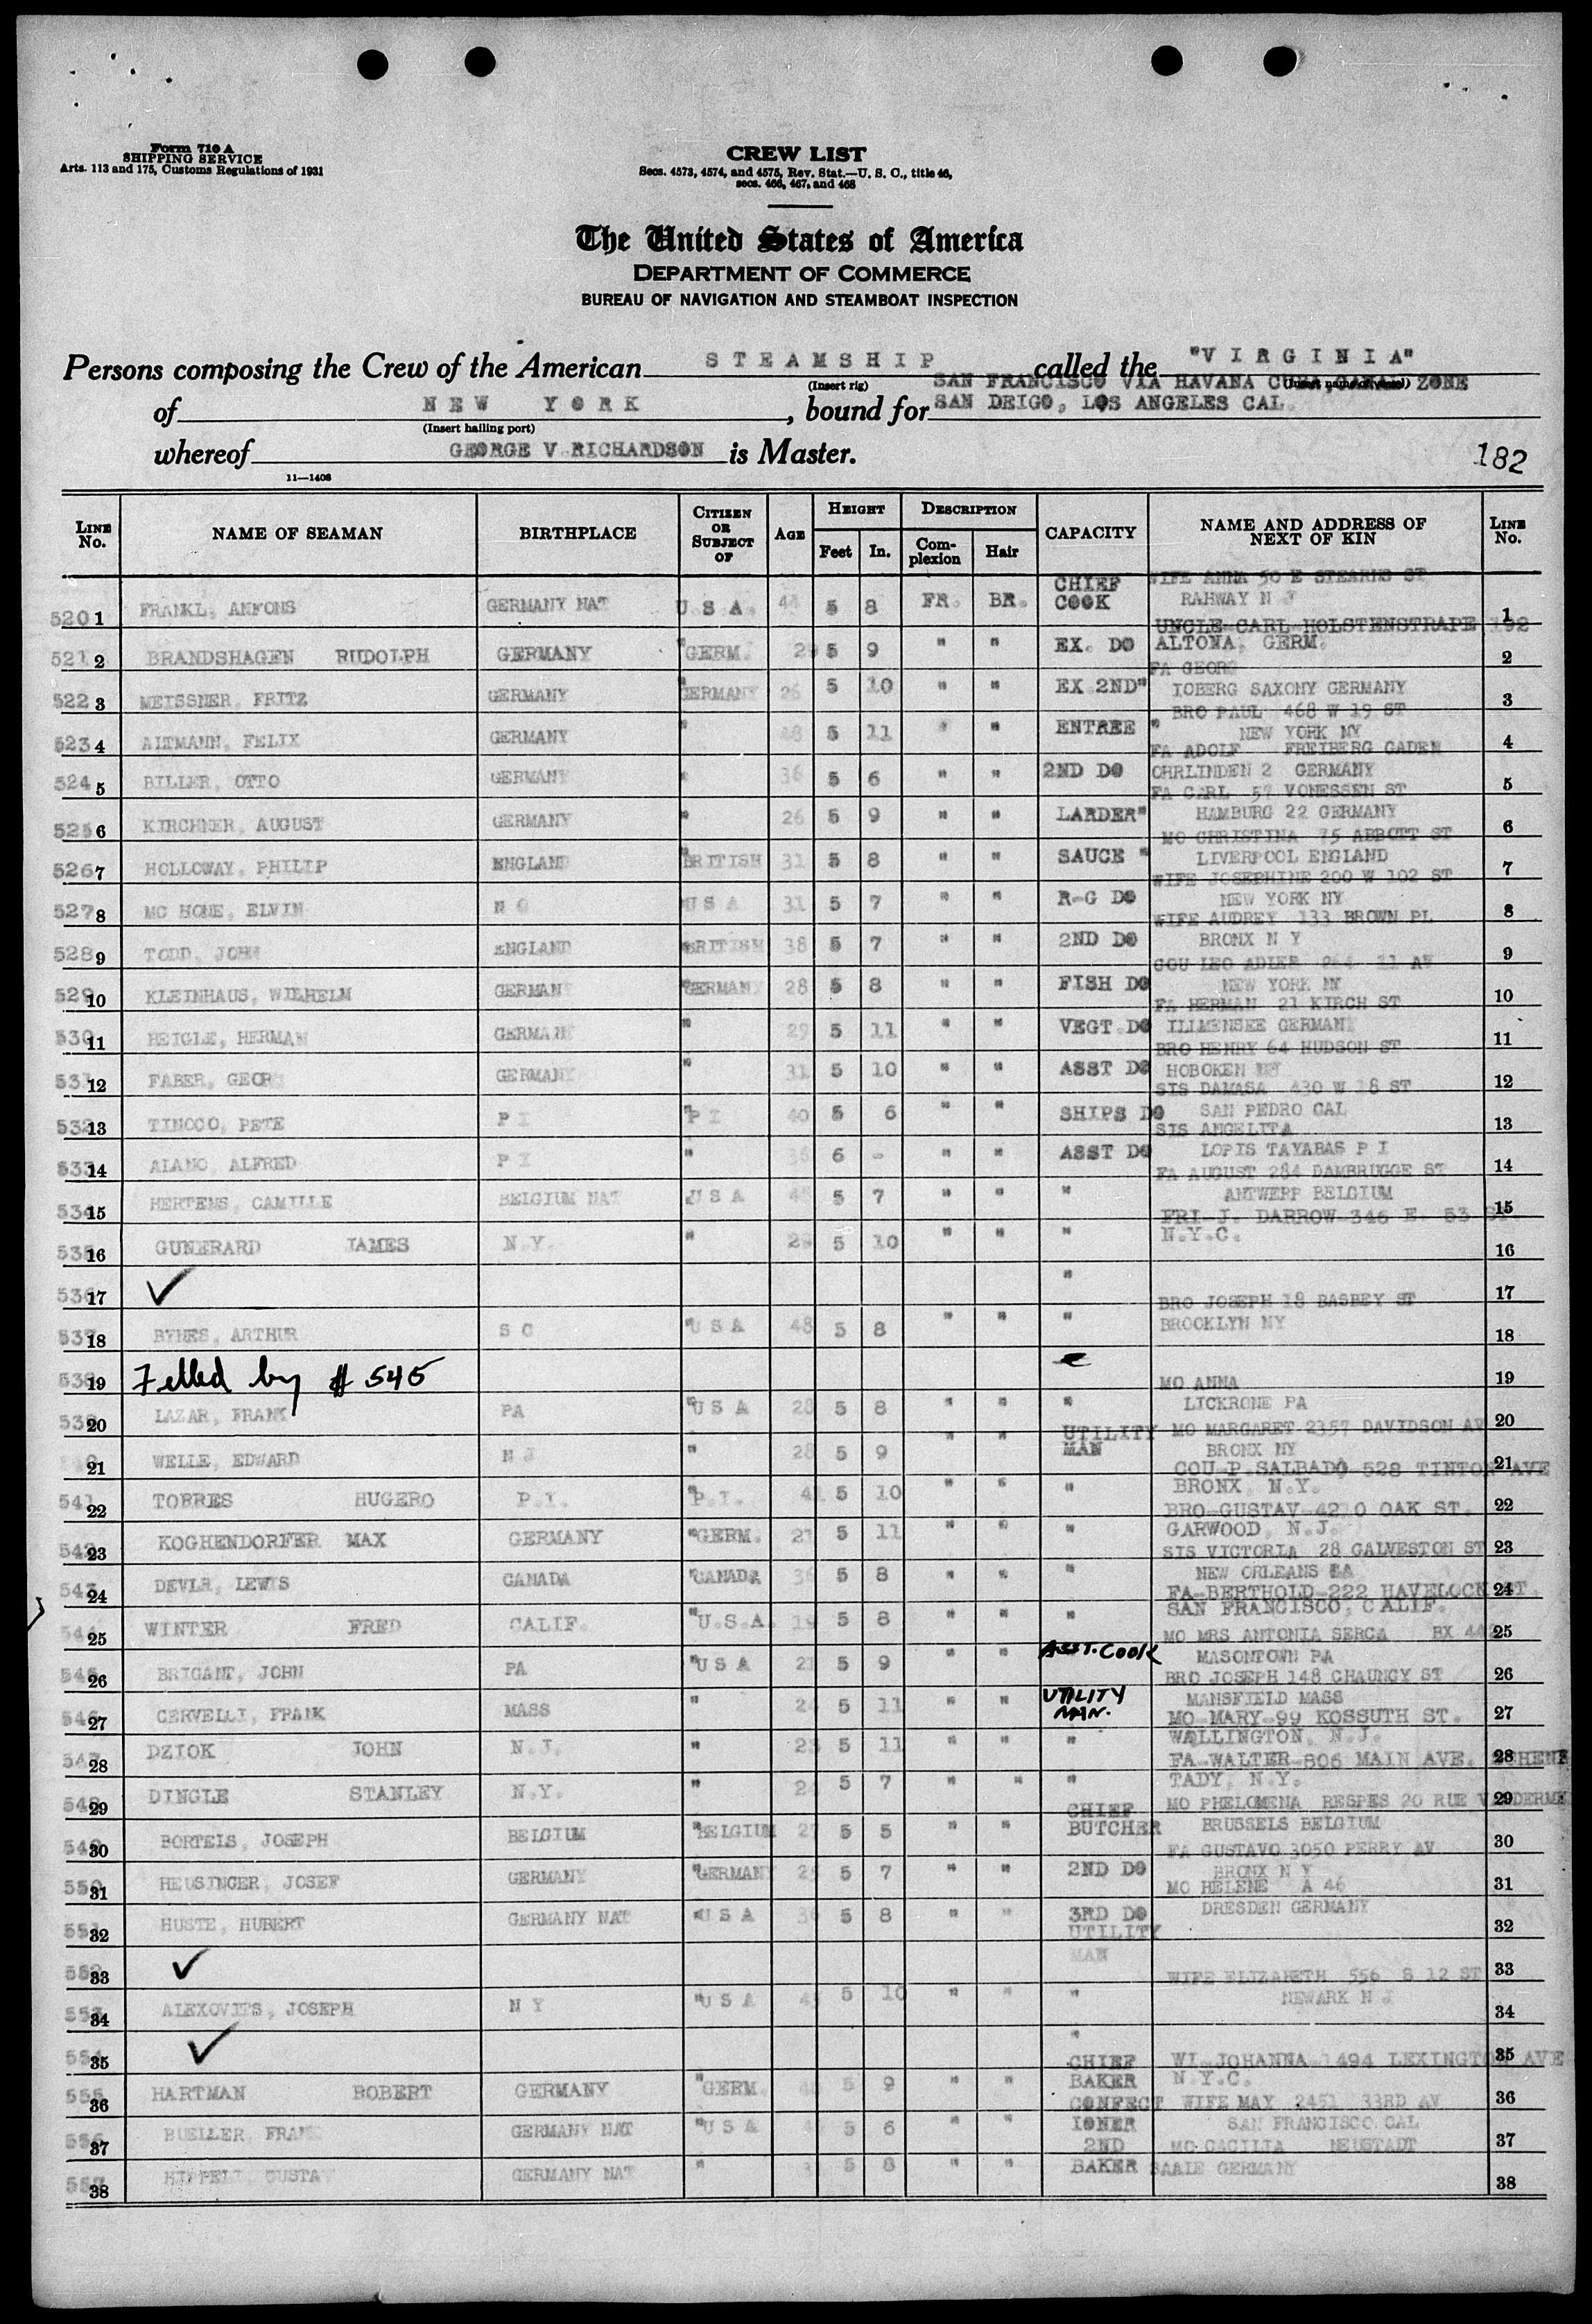 Form 710 A
SHIPPING SERVICE
Arts. 113 and 175, Customs Regulations of 1931
CREW LIST
Secs. 4573, 4574, and 4575, Rev. Stat.—U. S. C., title 46,
secs. 466, 467, and 468
The United States of America
DEPARTMENT OF COMMERCE
BUREAU OF NAVIGATION AND STEAMBOAT INSPECTION
Persons composing the Crew of the American STEAMSHIP called the "VIRGINIA"
(Insert rig)
SAN FRANCISCO VIA HAVANA CUBA, CANAL ZONE
of NEW YORK, bound for SAN DEIGO, LOS ANGELES CAL.
(Insert hailing port)
whereof GEORGE V RICHARDSON is Master.
11—1408
182
LINE No. NAME OF SEAMAN BIRTHPLACE CITIZEN OR SUBJECT OF AGE HEIGHT Feet In. DESCRIPTION Complexion Hair CAPACITY NAME AND ADDRESS OF NEXT OF KIN LINE No.
520 1 FRANKL, ANFONS GERMANY NAT U S A 5 8 FR. BR. CHIEF COOK WIFE ANNA 50 E STEARNS ST RAHWAY N J 1
521 2 BRANDSHAGEN RUDOLPH GERMANY "GERM. 29 5 9 " " EX. DO UNCLE CARL HOLSTENSTRAPE 192 ALTONA, GERM. 2
522 3 MEISSNER, FRITZ GERMANY "GERMANY 26 5 10 " " EX 2ND" FA GEORG IOBERG SAXONY GERMANY 3
523 4 ALTMANN, FELIX GERMANY " 48 5 11 " " ENTREE " BRO PAUL 468 W 19 ST NEW YORK NY 4
524 5 BILLER, OTTO GERMANY " 36 5 6 " " 2ND DO FA ADOLF FREIBERG GADEN OHRLINDEN 2 GERMANY 5
525 6 KIRCHNER, AUGUST GERMANY " 26 5 9 " " LARDER" FA CARL 57 VONESSEN ST HAMBURG 22 GERMANY 6
526 7 HOLLOWAY, PHILIP ENGLAND "BRITISH 31 5 8 " " SAUCE " MO CHRISTINA 75 ABBOTT ST LIVERPOOL ENGLAND 7
527 8 MC HONE, ELVIN N C U S A 31 5 7 " " R-G DO WIFE JOSEPHINE 200 W 102 ST NEW YORK NY 8
528 9 TODD, JOHN ENGLAND "BRITISH 38 5 7 " " 2ND DO WIFE AUDREY 133 BROWN PL BRONX N Y 9
529 10 KLEINHAUS, WILHELM GERMANY "GERMANY 28 5 8 " " FISH DO COU LEO ADLER 264 11 AV NEW YORK NY 10
530 11 HEIGLE, HERMAN GERMANY " 29 5 11 " " VEGT DO FA HERMAN 21 KIRCH ST ILLMENSEE GERMANY 11
531 12 FABER, GEORG GERMANY " 31 5 10 " " ASST DO BRO HENRY 64 HUDSON ST HOBOKEN 12
532 13 TINOCO, PETE P I "P I 40 5 6 " " SHIPS DO SIS DAMASA 430 W 18 ST SAN PEDRO CAL 13
533 14 ALANO, ALFRED P I " 36 6 - " " ASST DO SIS ANGELITA LOPIS TAYABAS P I 14
534 15 HERTENS, CAMILLE BELGIUM NAT "U S A 5 7 " " " FA AUGUST 284 DAMBRUGGE ST ANTWERP BELGIUM 15
535 16 GUNERARD JAMES N.Y. " 29 5 10 " " " FRI J. DARROW 346 E. 53 ST. N.Y.C. 16
536 17 ✓ " 17
537 18 BYNES, ARTHUR S C "U S A 48 5 8 " " " BRO JOSEPH 18 BASBEY ST BROOKLYN NY 18
538 19 Filled by # 545 19
539 20 LAZAR, FRANK PA "U S A 28 5 8 " " " MO ANNA LICKRONE PA 20
21 WELLE, EDWARD N J " 28 5 9 " " UTILITY MAN MO MARGARET 2357 DAVIDSON AV BRONX NY 21
541 22 TORRES HUGERO P.I. "P.I. 41 5 10 " " " COU P SALBADO 528 TINTON AVE BRONX, N.Y. 22
542 23 KOGHENDORFER MAX GERMANY "GERM. 27 5 11 " " " BRO GUSTAV 4210 OAK ST. GARWOOD, N.J. 23
543 24 DEVLR, LEWIS CANADA "CANADA 36 5 8 " " " SIS VICTORIA 28 GALVESTON ST NEW ORLEANS LA 24
544 25 WINTER FRED CALIF. "U.S.A. 19 5 8 " " " FA BERTHOLD 222 HAVELOCK ST. SAN FRANCISCO, CALIF. 25
545 26 BRIGANT, JOHN PA "U S A 21 5 9 " " ASST. COOK MO MRS ANTONIA SERCA BX MASONTOWN PA 26
546 27 CERVELLI, FRANK MASS " 24 5 11 " " UTILITY MAN. BRO JOSEPH 148 CHAUNCY ST MANSFIELD MASS 27
547 28 DZIOK JOHN N.J. " 23 5 11 " " " MO MARY 99 KOSSUTH ST. WALLINGTON, N.J. 28
548 29 DINGLE STANLEY N.Y. " 24 5 7 " " " FA WALTER 806 MAIN AVE. SCHENE TADY, N.Y. 29
549 30 BORTELS, JOSEPH BELGIUM "BELGIUM 27 5 5 " " CHIEF BUTCHER MO PHELOMENA RESPES 20 RUE BRUSSELS BELGIUM 30
550 31 HEUSINGER, JOSEF GERMANY "GERMANY 25 5 7 " " 2ND DO FA GUSTAVO 3050 PERRY AV BRONX N Y 31
551 32 HUSTE, HUBERT GERMANY NAT "U S A 5 8 " " 3RD DO MO HELENE A 46 DRESDEN GERMANY 32
552 33 ✓ UTILITY MAN 33
553 34 ALEXOVITS, JOSEPH N Y "U S A 5 10 " " " WIFE ELIZABETH 556 S 12 ST NEWARK N J 34
554 35 ✓ " 35
555 36 HARTMAN ROBERT GERMANY "GERM. 5 9 " " CHIEF BAKER WI JOHANNA 1494 LEXINGTON AVE N.Y.C. 36
556 37 BUELLER, FRANK GERMANY NAT "U S A 5 6 " " CONFECT IONER WIFE MAY 2451 33RD AV SAN FRANCISCO CAL 37
557 38 HIPPELI, GUSTAV GERMANY NAT " 5 8 " " 2ND BAKER MO CACILIA NEUSTADT SAALE GERMANY 38